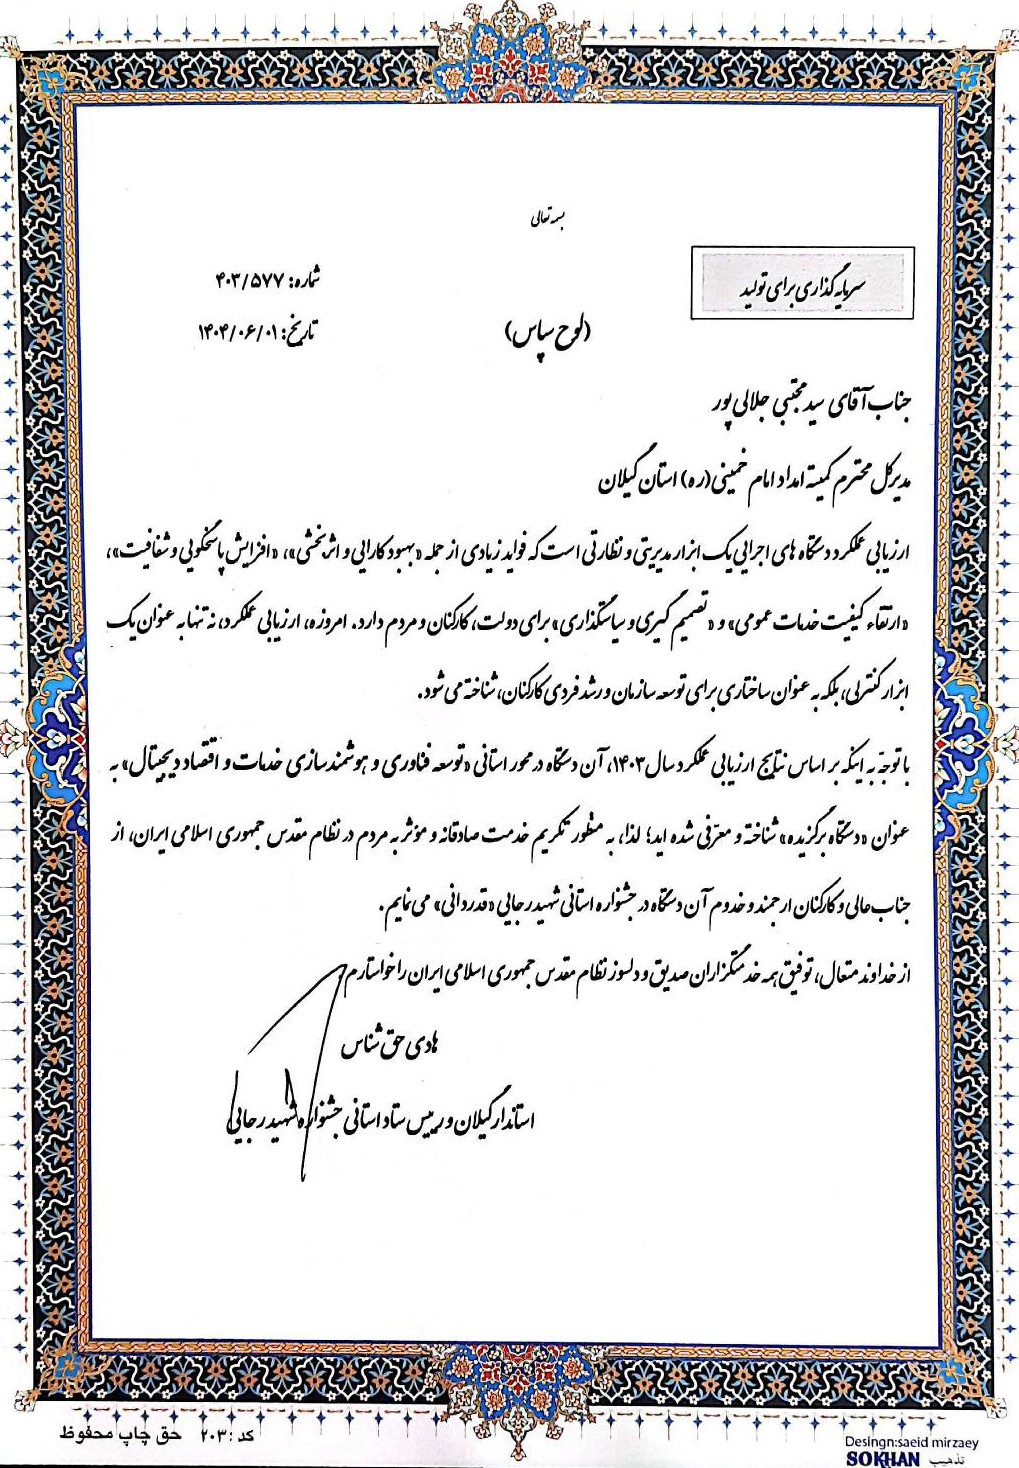 بسمه تعالی
سرمایه گذاری برای تولید
شماره: ۴۰۳/۵۷۷
تاریخ: ۱۴۰۴/۰۶/۰۱
(لوح سپاس)
جناب آقای سید مجتبی جلالی پور
مدیرکل محترم کمیته امداد امام خمینی(ره) استان گیلان
ارزیابی عملکرد دستگاه های اجرایی یک ابزار مدیریتی و نظارتی است که فواید زیادی از جمله «بهبود کارایی و اثربخشی»، «افزایش پاسخگویی و شفافیت»،
«ارتقاء کیفیت خدمات عمومی» و «تصمیم گیری و سیاستگذاری» برای دولت، کارکنان و مردم دارد. امروزه، ارزیابی عملکرد، نه تنها به عنوان یک
ابزار کنترلی، بلکه به عنوان ساختاری برای توسعه سازمان و رشد فردی کارکنان، شناخته می شود.
با توجّه به اینکه بر اساس نتایج ارزیابی عملکرد سال ۱۴۰۳، آن دستگاه در محور استانی «توسعه فناوری و هوشمندسازی خدمات و اقتصاد دیجیتال» به
عنوان «دستگاه برگزیده» شناخته و معرّفی شده اید؛ لذا، به منظور تکریم خدمت صادقانه و مؤثر به مردم در نظام مقدس جمهوری اسلامی ایران، از
جناب عالی و کارکنان ارجمند و خدوم آن دستگاه در جشنواره استانی شهید رجایی «قدردانی» می نمایم.
از خداوند متعال، توفیق همه خدمتگزاران صدیق و دلسوز نظام مقدس جمهوری اسلامی ایران را خواستارم
هادی حق شناس
استاندار گیلان و رییس ستاد استانی جشنواره شهید رجایی
کد: ۲۰۳ حق چاپ محفوظ
Desingn:saeid mirzaey
تذهیب SOKHAN